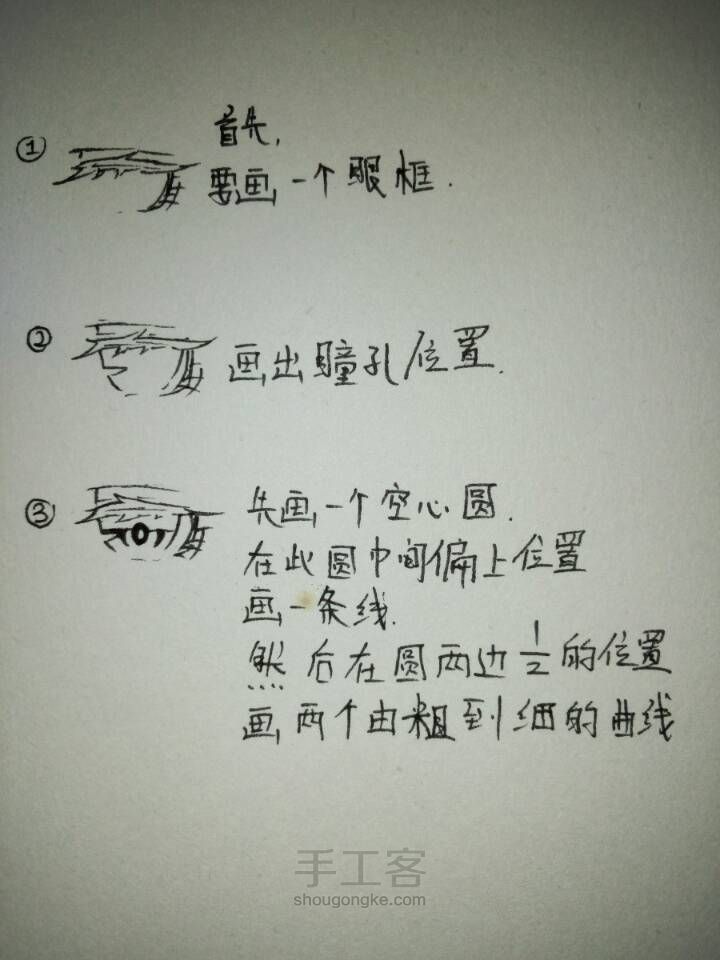 ① 首先,
要画一个眼框.
② 画出瞳孔位置.
③ 先画一个空心圆.
在此圆中间偏上位置
画一条线.
然后在圆两边1/2的位置
画两个由粗到细的曲线
手工客
shougongke.com